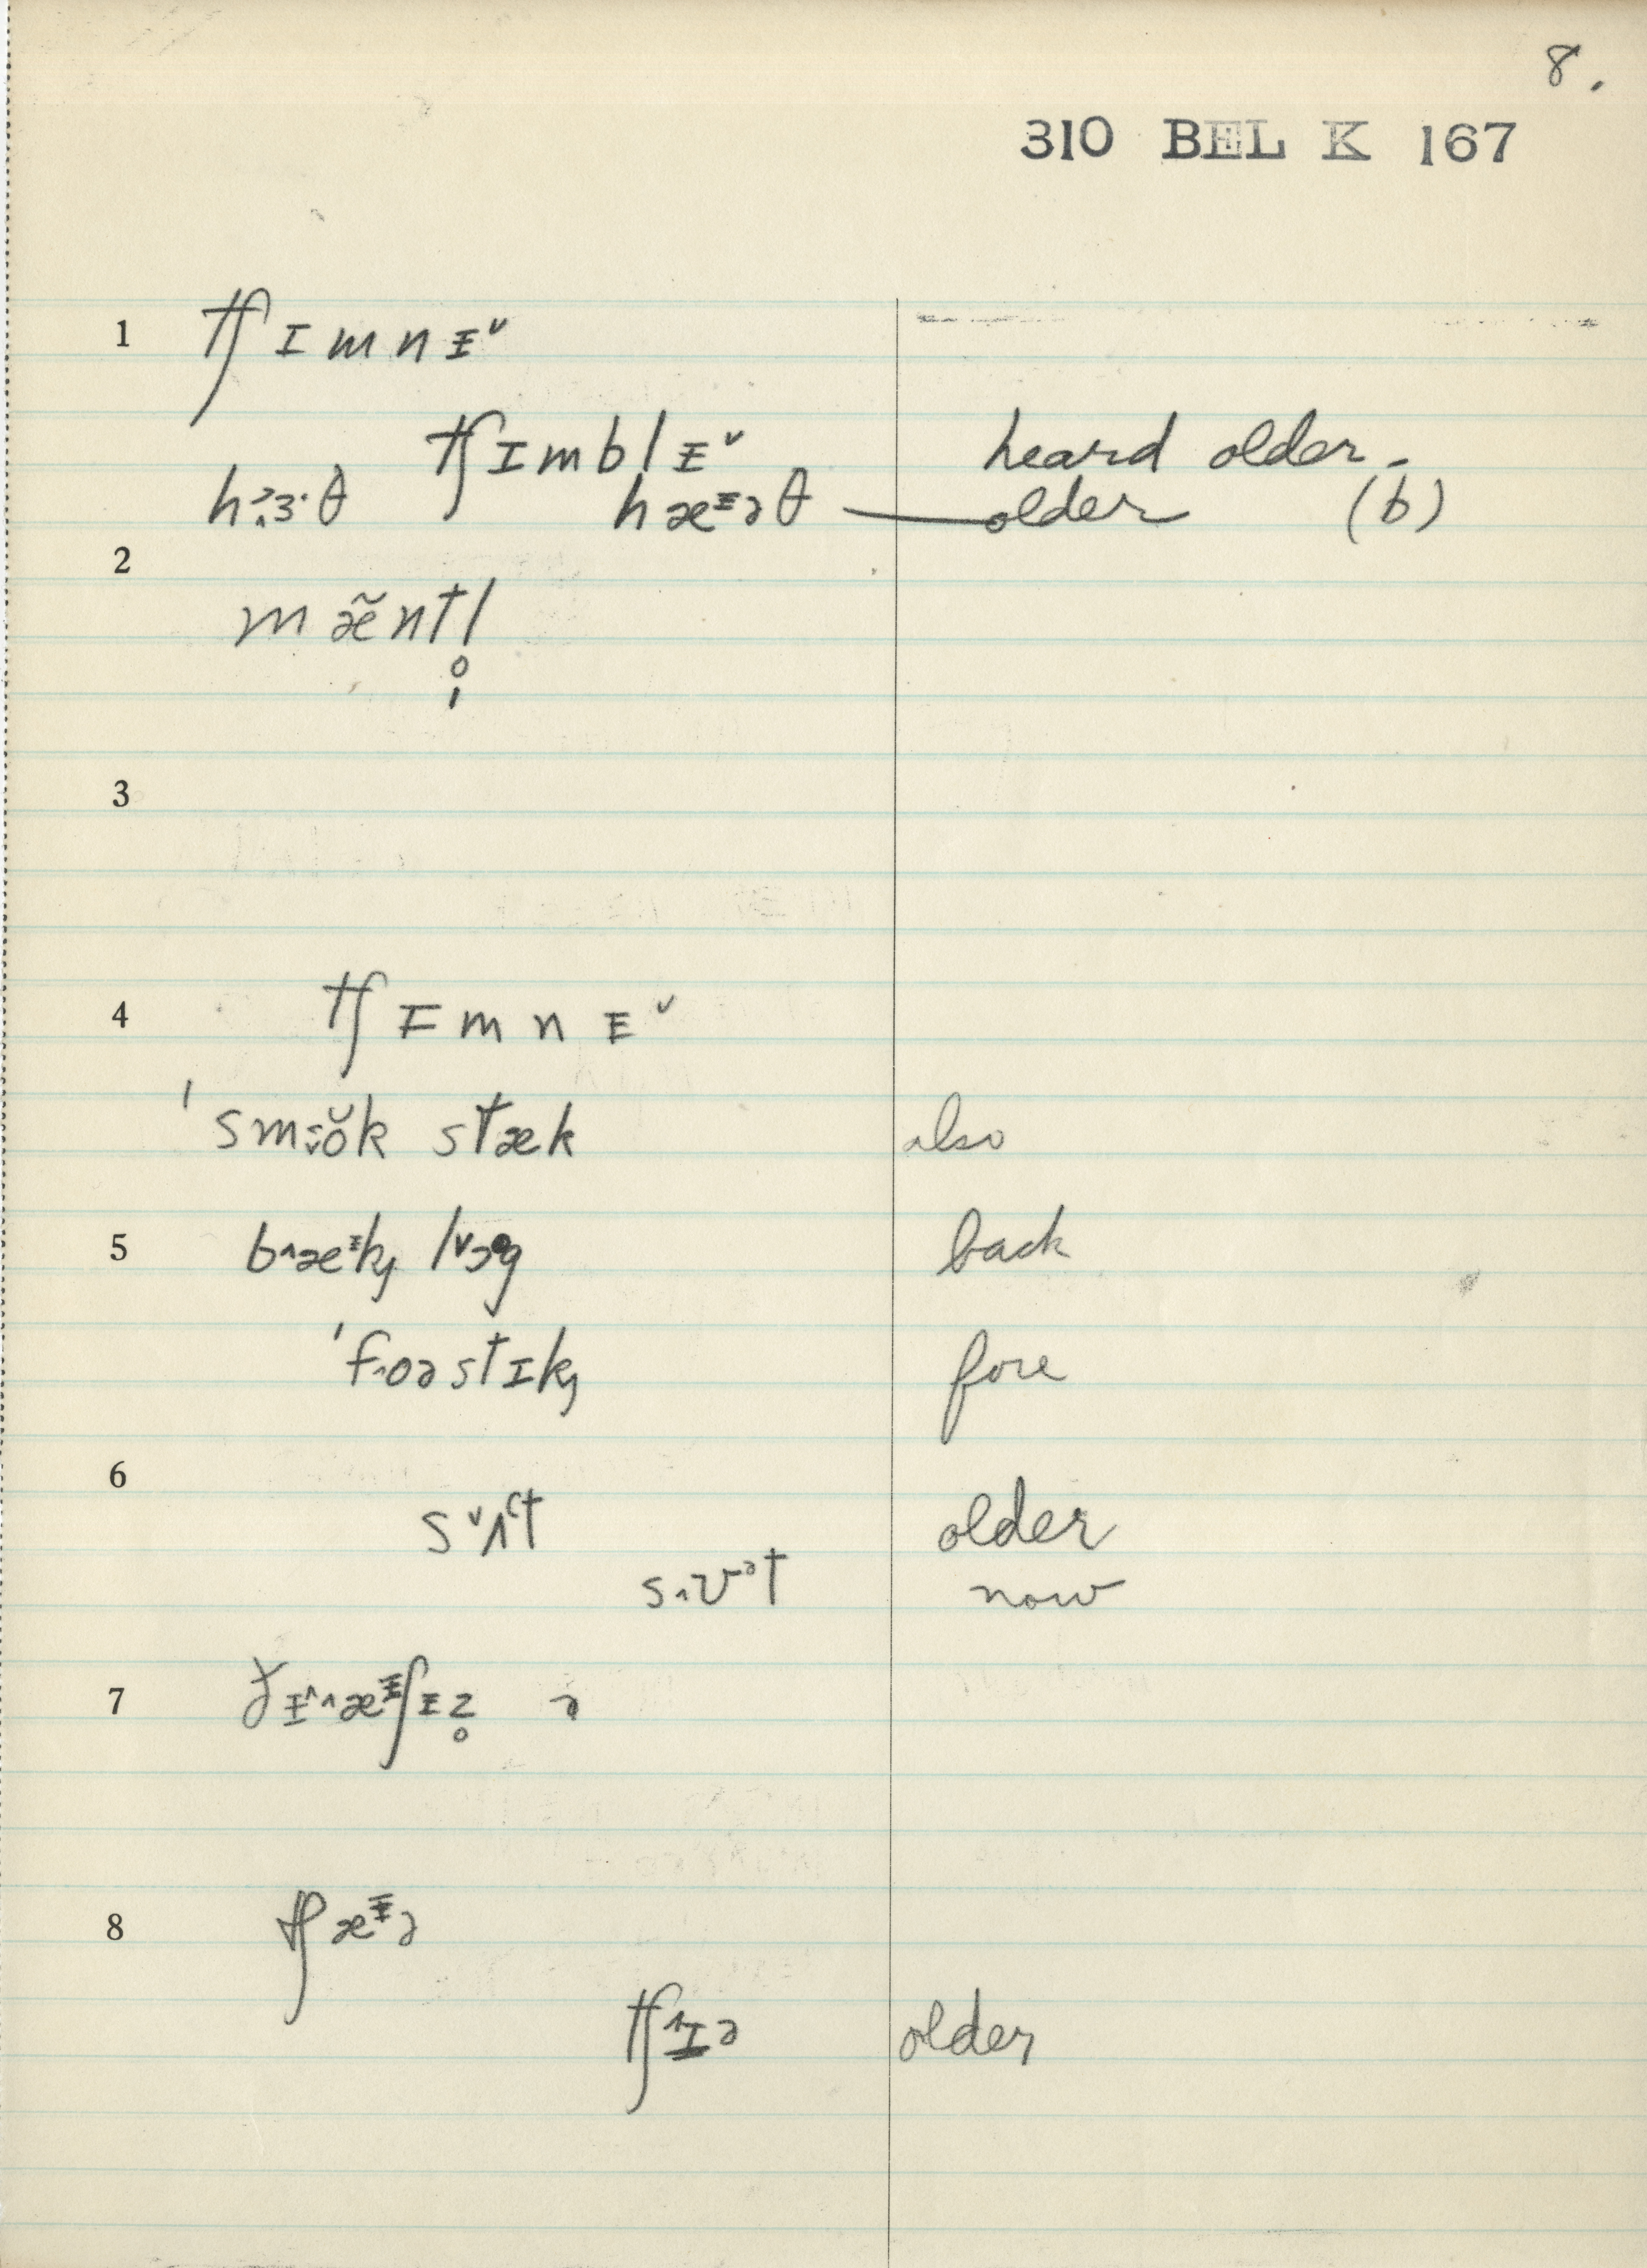 8.
310 BEL K 167
1 tʃɪmnɪ̵ᵛ
tʃɪmblɪ̵ᵛ heard older.
hɜ·θ hæɪ̵əθ — older (b)
2
mæ̃ntl̥
3
4 tʃɪmnɪ̵ᵛ
ˈsmŏk stæk also
5 b˄æᶤk lᵛɔg back
ˈf˄oəstɪk fore
6
sᵛʌt older
s˄ʊᵊt now
7 ðɪ˄˄æᶤʃɪ̵z̥ ə
8 tʃæᶤə
tʃ˄ɪə older